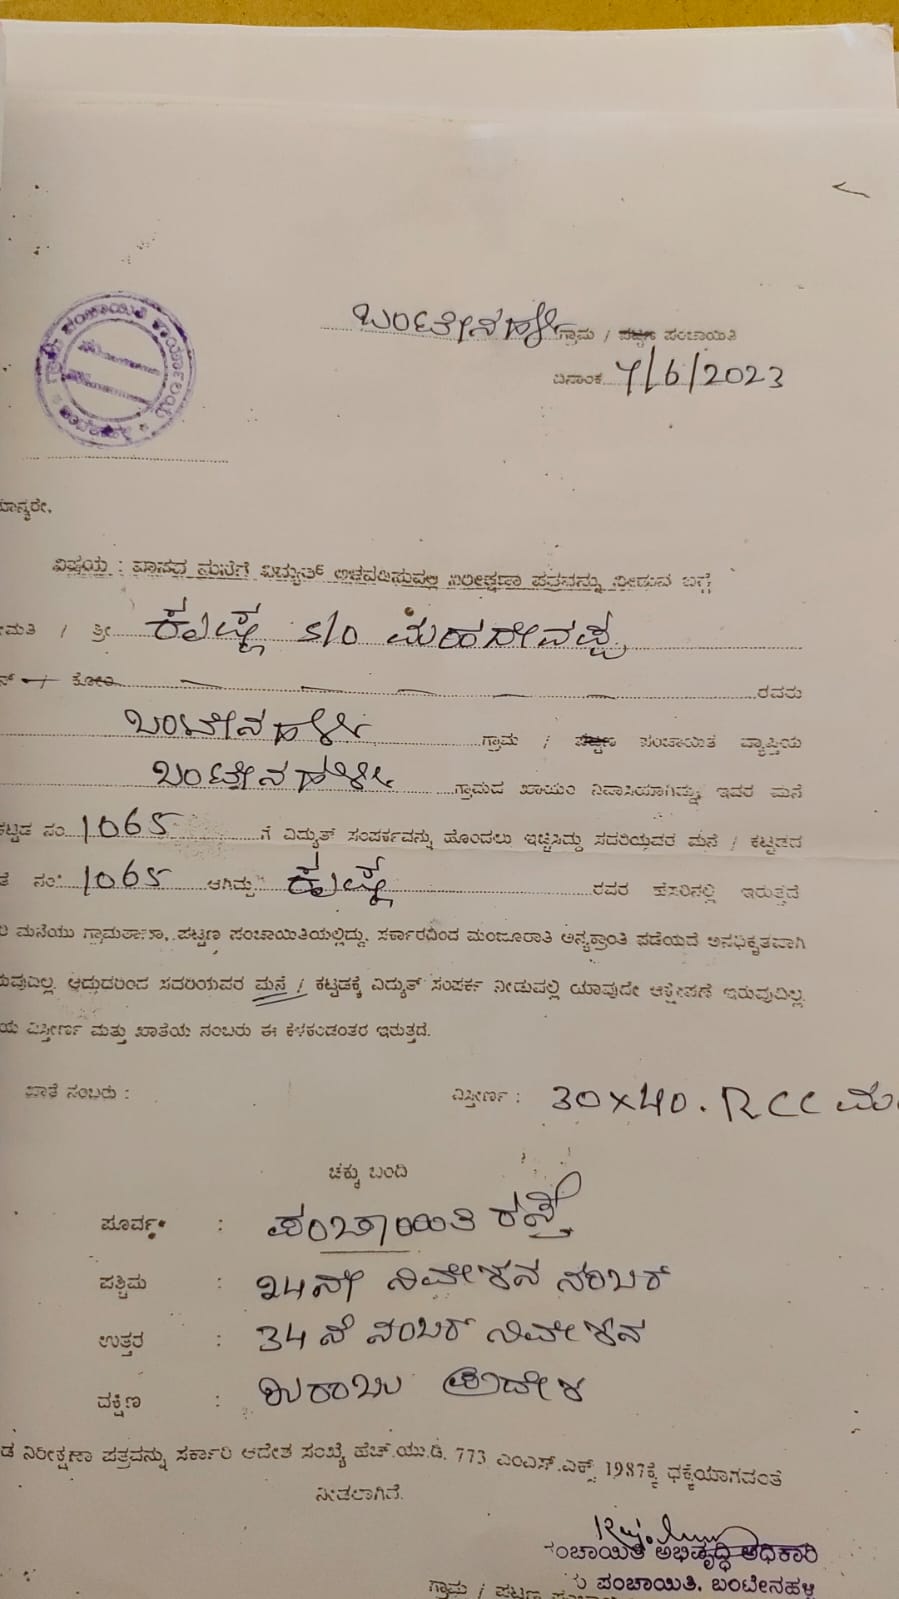 ಬಂಟೇನಹಳ್ಳಿ ಗ್ರಾಮ / ಪಟ್ಟಣ ಪಂಚಾಯಿತಿ
ದಿನಾಂಕ 7/6/2023
ಗ್ರಾಮ ಪಂಚಾಯಿತಿ ಕಾರ್ಯಾಲಯ
ಮಾನ್ಯರೇ,
ವಿಷಯ : ವಾಸದ ಮನೆಗೆ ವಿದ್ಯುತ್ ಅಳವಡಿಸುವಲ್ಲಿ ನಿರೀಕ್ಷಣಾ ಪತ್ರವನ್ನು ನೀಡುವ ಬಗ್ಗೆ
ಮತಿ / ಶ್ರೀ ಕೃಷ್ಣ S/O ಮಹದೇವಪ್ಪ
ಕೋರಿ ರವರು
ಬಂಟೇನಹಳ್ಳಿ ಗ್ರಾಮ / ಪಟ್ಟಣ ಪಂಚಾಯಿತಿ ವ್ಯಾಪ್ತಿಯ
ಬಂಟೇನಹಳ್ಳಿ ಗ್ರಾಮದ ಖಾಯಂ ನಿವಾಸಿಯಾಗಿದ್ದು, ಇವರ ಮನೆ
ಕಟ್ಟಡ ನಂ 1065 ಗೆ ವಿದ್ಯುತ್ ಸಂಪರ್ಕವನ್ನು ಹೊಂದಲು ಇಚ್ಛಿಸಿದ್ದು ಸದರಿಯವರ ಮನೆ / ಕಟ್ಟಡದ
ತೆ ನಂ 1065 ಆಗಿದ್ದು ಕೃಷ್ಣ ರವರ ಹೆಸರಿನಲ್ಲಿ ಇರುತ್ತದೆ
ರಿ ಮನೆಯು ಗ್ರಾಮಠಾಣಾ, ಪಟ್ಟಣ ಪಂಚಾಯಿತಿಯಲ್ಲಿದ್ದು, ಸರ್ಕಾರದಿಂದ ಮಂಜೂರಾತಿ ಅನ್ಯಕ್ರಾಂತಿ ಪಡೆಯದೆ ಅನಧಿಕೃತವಾಗಿ
ರುವುದಿಲ್ಲ. ಆದುದರಿಂದ ಸದರಿಯವರ ಮನೆ / ಕಟ್ಟಡಕ್ಕೆ ವಿದ್ಯುತ್ ಸಂಪರ್ಕ ನೀಡುವಲ್ಲಿ ಯಾವುದೇ ಆಕ್ಷೇಪಣೆ ಇರುವುದಿಲ್ಲ.
ಯ ವಿಸ್ತೀರ್ಣ ಮತ್ತು ಖಾತೆಯ ನಂಬರು ಈ ಕೆಳಕಂಡಂತರ ಇರುತ್ತದೆ.
ಖಾತೆ ನಂಬರು : ವಿಸ್ತೀರ್ಣ : 30x40. RCC ಮ
ಚಕ್ಕು ಬಂದಿ
ಪೂರ್ವ : ಪಂಚಾಯಿತಿ ರಸ್ತೆ
ಪಶ್ಚಿಮ : 24ನೇ ನಿವೇಶನ ನಂಬರ್
ಉತ್ತರ : 34 ನೆ ನಂಬರ್ ನಿವೇಶನ
ದಕ್ಷಿಣ : ಖರಾಬು ಪ್ರದೇಶ
ಡ ನಿರೀಕ್ಷಣಾ ಪತ್ರವನ್ನು ಸರ್ಕಾರಿ ಆದೇಶ ಸಂಖ್ಯೆ ಹೆಚ್.ಯು.ಡಿ. 773 ಎಂಎಸ್.ಎಕ್ಸ್ 1987ಕ್ಕೆ ಧಕ್ಕೆಯಾಗದಂತೆ
ನೀಡಲಾಗಿದೆ.
ಪಂಚಾಯಿತಿ ಅಭಿವೃದ್ಧಿ ಅಧಿಕಾರಿ
ಪಂಚಾಯಿತಿ, ಬಂಟೇನಹಳ್ಳಿ
ಗ್ರಾಮ / ಪಟ್ಟಣ